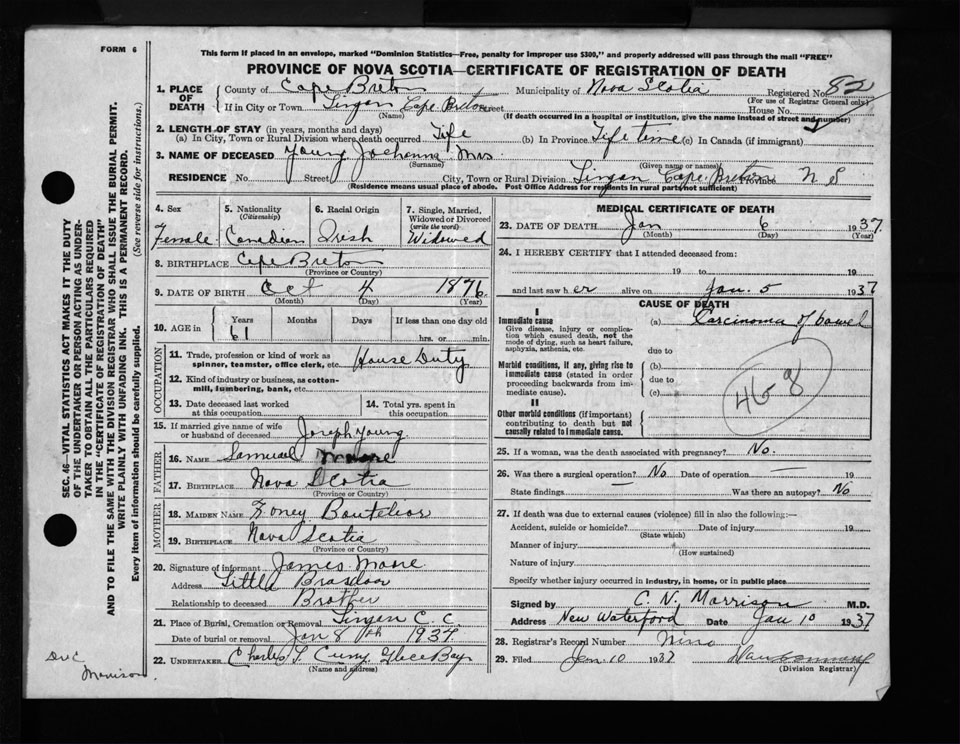 FORM 6
This form if placed in an envelope, marked "Dominion Statistics—Free, penalty for improper use $300," and properly addressed will pass through the mail "FREE"
PROVINCE OF NOVA SCOTIA—CERTIFICATE OF REGISTRATION OF DEATH
1. PLACE OF DEATH County of Cape Breton Municipality of Nova Scotia Registered No. 82
(For use of Registrar General only)
If in City or Town Lingan Cape Breton Street House No.
(Name) (If death occurred in a hospital or institution, give the name instead of street and number)
2. LENGTH OF STAY (in years, months and days)
(a) In City, Town or Rural Division where death occurred Life (b) In Province Life time (c) In Canada (if immigrant)
3. NAME OF DECEASED Young Johenna Mrs.
(Surname) (Given name or names)
RESIDENCE No. Street City, Town or Rural Division Lingan Cape Breton Province N S
(Residence means usual place of abode. Post Office Address for residents in rural parts not sufficient)
4. Sex 5. Nationality (Citizenship) 6. Racial Origin 7. Single, Married, Widowed or Divorced (write the word)
Female Canadien Irish Widowed
8. BIRTHPLACE Cape Breton
(Province or Country)
9. DATE OF BIRTH Oct 4 1876
(Month) (Day) (Year)
10. AGE in Years Months Days If less than one day old
61 hrs. or min.
OCCUPATION
11. Trade, profession or kind of work as spinner, teamster, office clerk, etc. House Duty
12. Kind of industry or business, as cotton-mill, lumbering, bank, etc.
13. Date deceased last worked at this occupation
14. Total yrs. spent in this occupation
15. If married give name of wife or husband of deceased Joseph Young
FATHER
16. NAME Samual Moore
17. BIRTHPLACE Nova Scotia
(Province or Country)
MOTHER
18. MAIDEN NAME Boutelior
19. BIRTHPLACE Nova Scotia
(Province or Country)
20. Signature of informant James Moore
Address Little Brasdoor
Relationship to deceased Brother
21. Place of Burial, Cremation or Removal Lingan C. C.
Date of burial or removal Jan 8th 1937
22. UNDERTAKER Charles Curry Glace Bay
(Name and address)
MEDICAL CERTIFICATE OF DEATH
23. DATE OF DEATH Jan 6 1937
(Month) (Day) (Year)
24. I HEREBY CERTIFY that I attended deceased from:
19 to 19
and last saw her alive on Jan. 5 1937
CAUSE OF DEATH
I
Immediate cause (a) Carcinoma of bowel
Give disease, injury or complication which caused death, not the mode of dying, such as heart failure, asphyxia, asthenia, etc.
due to
Morbid conditions, if any, giving rise to immediate cause (stated in order proceeding backwards from immediate cause). (b)
due to
(c)
II
Other morbid conditions (if important) contributing to death but not causally related to immediate cause.
46 8
25. If a woman, was the death associated with pregnancy? No.
26. Was there a surgical operation? No Date of operation — 19
State findings — Was there an autopsy? No
27. If death was due to external causes (violence) fill in also the following:—
Accident, suicide or homicide? Date of injury 19
(State which)
Manner of injury
(How sustained)
Nature of injury
Specify whether injury occurred in industry, in home, or in public place
Signed by C. N. Morrison M.D.
Address New Waterford Date Jan 10 1937
28. Registrar's Record Number Nine
29. Filed Jan 10 1937
(Division Registrar)
SEC. 46—VITAL STATISTICS ACT MAKES IT THE DUTY
OF THE UNDERTAKER OR PERSON ACTING AS UNDER-
TAKER TO OBTAIN ALL THE PARTICULARS REQUIRED
IN THE "CERTIFICATE OF REGISTRATION OF DEATH"
AND TO FILE THE SAME WITH THE DIVISION REGISTRAR WHO SHALL ISSUE THE BURIAL PERMIT.
WRITE PLAINLY WITH UNFADING INK. THIS IS A PERMANENT RECORD.
Every item of information should be carefully supplied. (See reverse side for instructions.)
Morrison